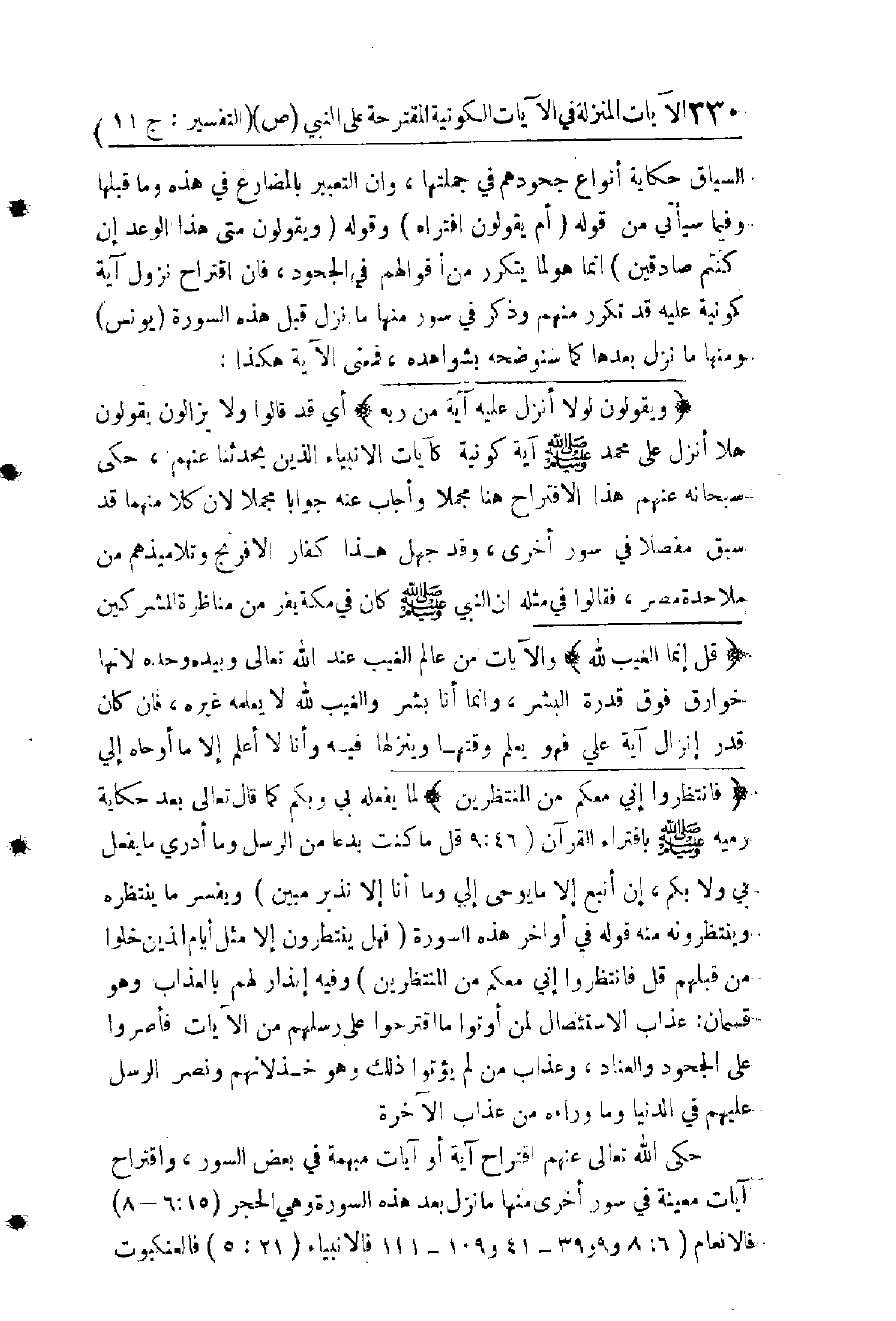 ٣٣٠ الآيات المنزلة في الآيات الكونية المقترحة على النبي (ص) (التفسير : ج ١١)
السياق حكاية أنواع جحودهم في جملتها ، وان التعبير بالمضارع في هذه وما قبلها
وفيما سيأتي من قوله ( أم يقولون افتراه ) وقوله ( ويقولون متى هذا الوعد إن
كنتم صادقين ) انما هو لما يتكرر من أقوالهم في الجحود ، فان اقتراح نزول آية
كونية عليه قد تكرر منهم وذكر في سور منها ما نزل قبل هذه السورة (يونس)
ومنها ما نزل بعدها كما سنوضحه بشواهده ، فمعنى الآية هكذا :
﴿ ويقولون لولا أنزل عليه آية من ربه ﴾ أي قد قالوا ولا يزالون يقولون
هلا أنزل على محمد ﷺ آية كونية كآيات الانبياء الذين يحدثنا عنهم ، حكى
سبحانه عنهم هذا الاقتراح هنا مجملا وأجاب عنه جوابا مجملا لان كلا منهما قد
سبق مفصلا في سور أخرى ، وقد جهل هـذا كفار الافرنج وتلاميذهم من
ملاحدة مصر ، فقالوا في مثله ان النبي ﷺ كان في مكة يفر من مناظرة المشركين
﴿ قل إنما الغيب لله ﴾ والآيات من عالم الغيب عند الله تعالى وبيده وحده لانها
خوارق فوق قدرة البشر ، وانما أنا بشر والغيب لله لا يعلمه غيره ، فان كان
قدر إنزال آية علي فهو يعلم وقتهـا وينزلها فيـه وأنا لا أعلم إلا ما أوحاه إلي
﴿ فانتظروا إني معكم من المنتظرين ﴾ لما يفعله بي وبكم كما قال تعالى بعد حكاية
رميه ﷺ بافتراء القرآن ( ٤٦:٩ قل ما كنت بدعا من الرسل وما أدري ما يفعل
بي ولا بكم ، إن أتبع إلا ما يوحى إلي وما أنا إلا نذير مبين ) ويفسر ما ينتظره
وينتظرونه منه قوله في أواخر هذه السورة ( فهل ينتظرون إلا مثل أيام الذين خلوا
من قبلهم قل فانتظروا إني معكم من المنتظرين ) وفيه إنذار لهم بالعذاب وهو
قسمان: عذاب الاستئصال لمن أوتوا ما اقترحوا على رسلهم من الآيات فأصروا
على الجحود والعناد ، وعذاب من لم يؤتوا ذلك وهو خـذلانهم ونصر الرسل
عليهم في الدنيا وما وراءه من عذاب الآخرة
حكى الله تعالى عنهم اقتراح آية أو آيات مبهمة في بعض السور ، واقتراح
آيات معينة في سور أخرى منها ما نزل بعد هذه السورة وهي الحجر (١٥:٦ – ٨)
فالانعام ( ٦: ٨ و٩ و٣٩ – ٤١ و ١٠٩ – ١١١ فالانبياء ( ٢١ : ٥ ) فالعنكبوت